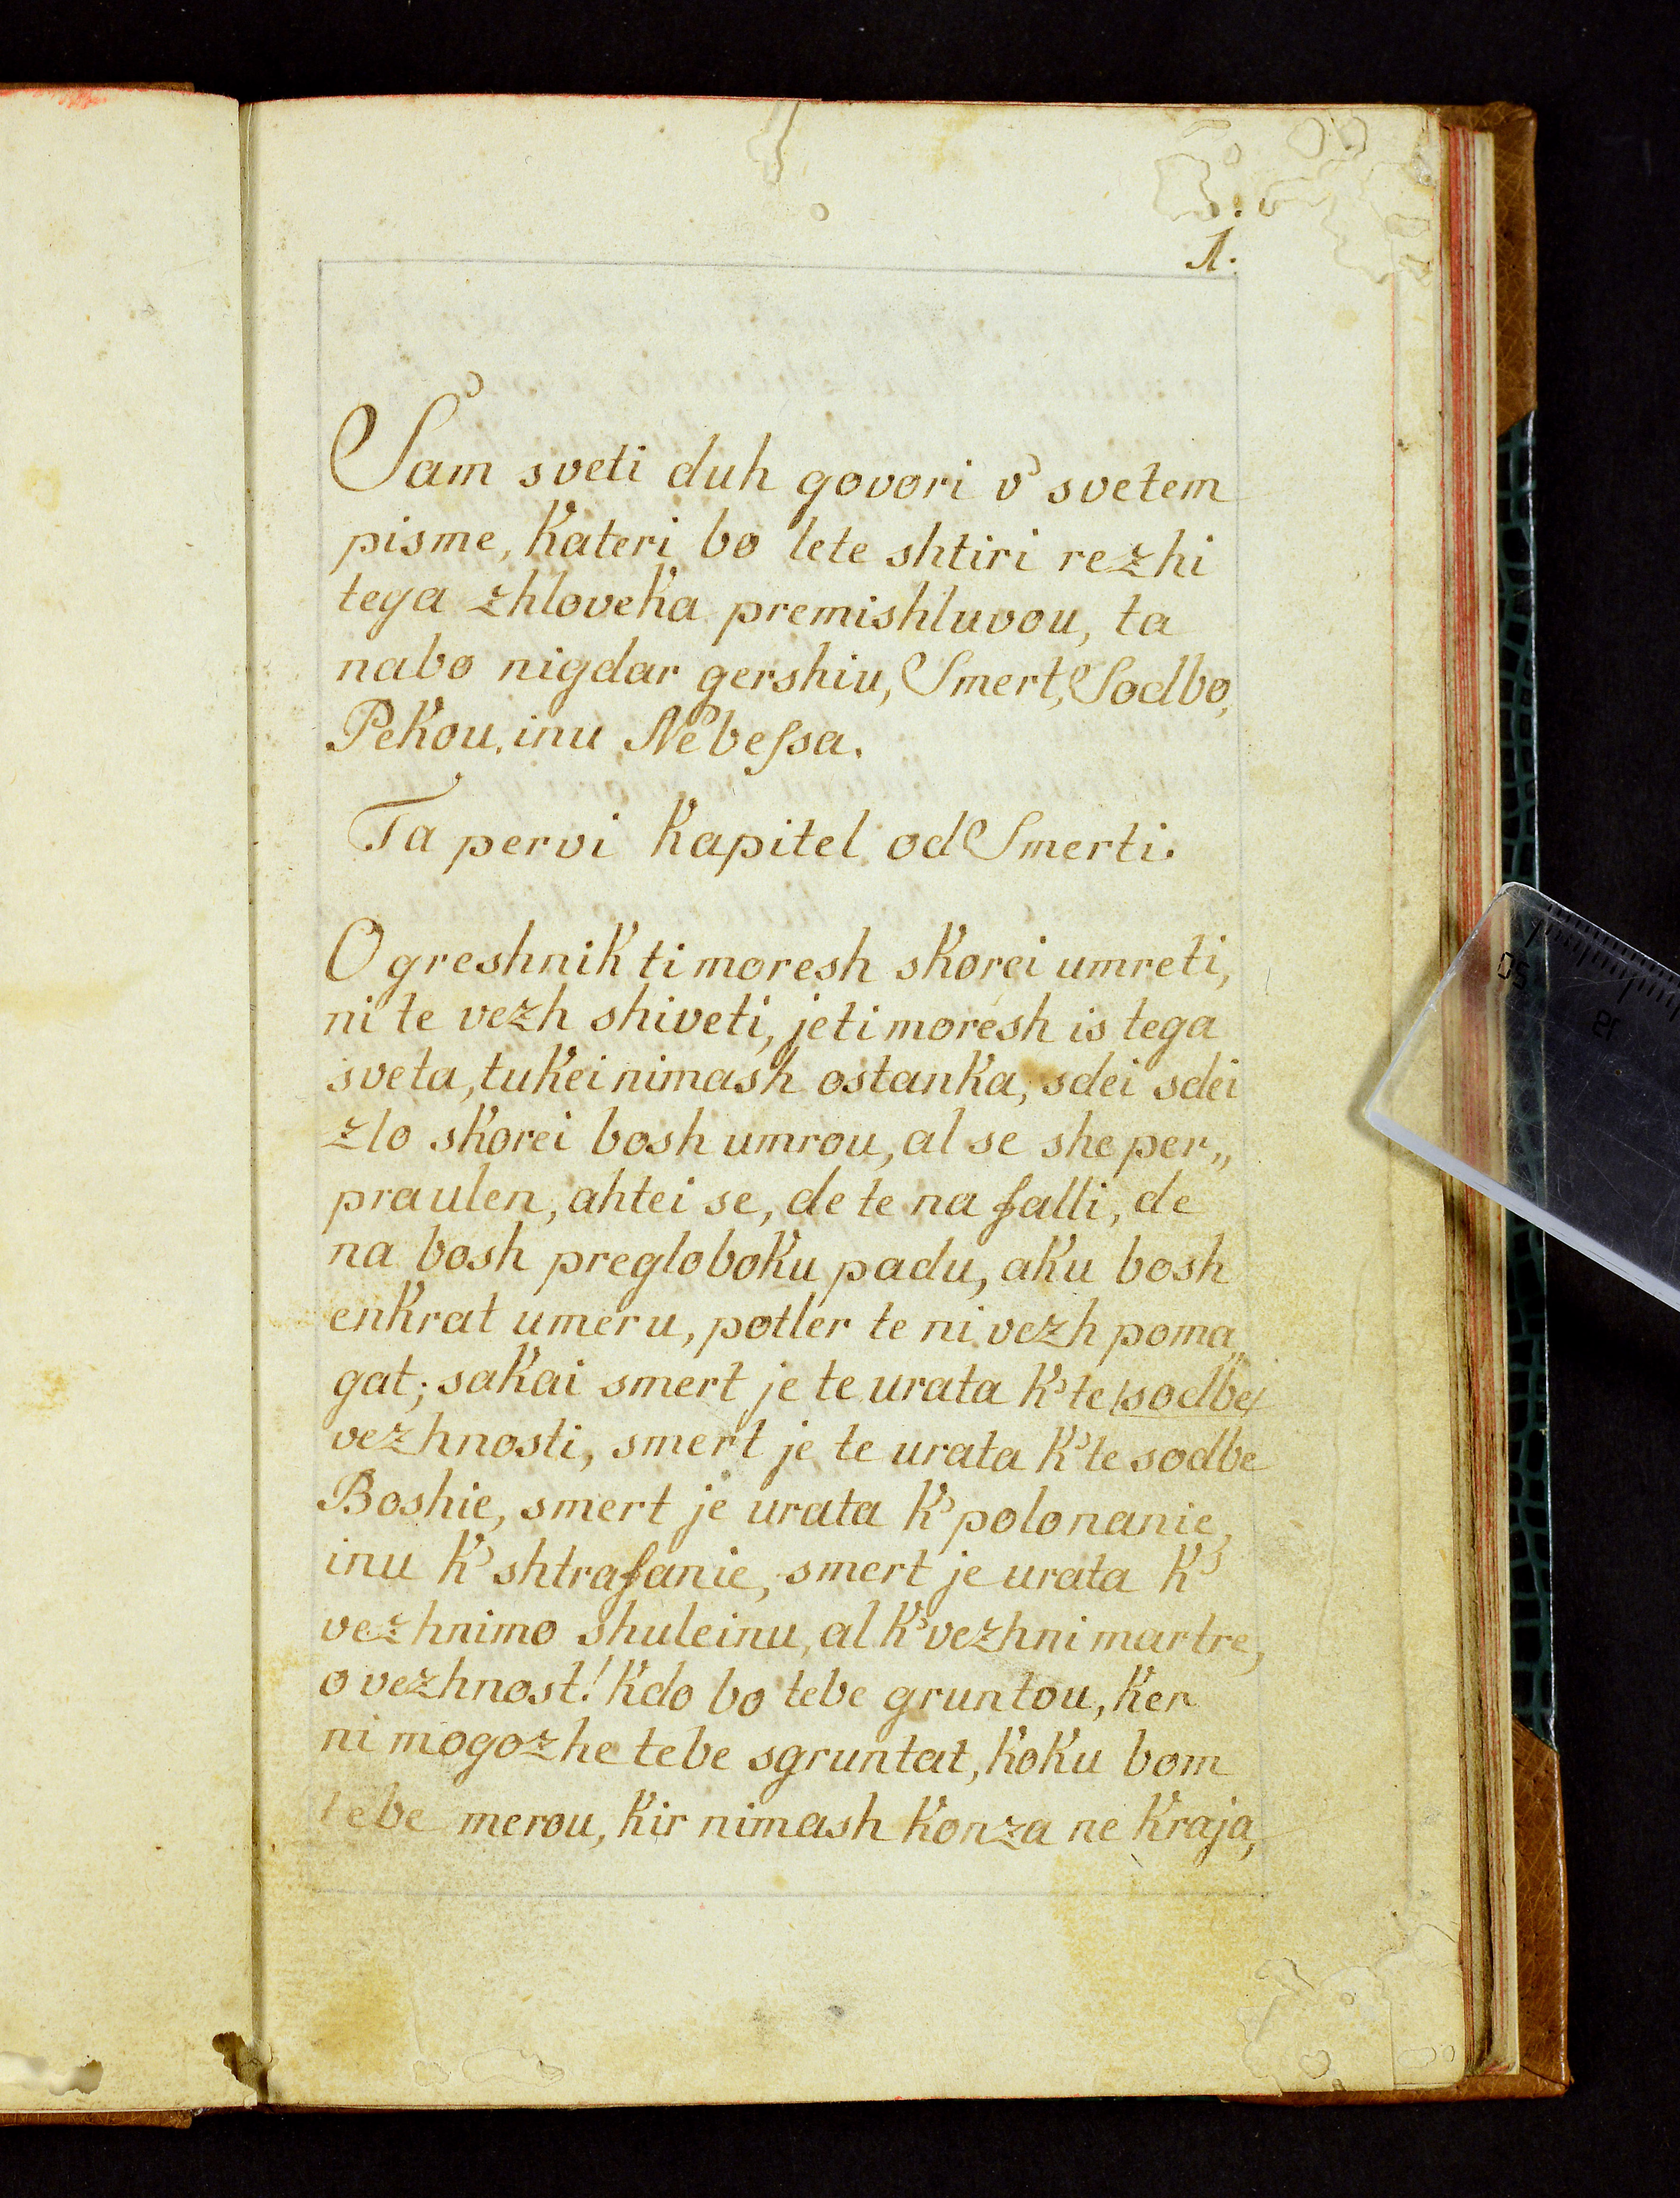 1.
Sam sveti duh govori v' svetem
pisme, kateri bo lete shtiri rezhi
tega zhloveka premishluvou, ta
nabo nigdar gershiu, Smert, Sodbo,
Pekou, inu Nebeſsa.
Ta pervi kapitel od Smerti.
O greshnik ti moresh skorei umreti,
ni te vezh shiveti, jeti moresh is tega
sveta, tukei nimash ostanka, sdei sdei
zlo skorei bosh umrou, al se she per„
praulen, ahtei se, de te na falli, de
na bosh pregloboku padu, aku bosh
enkrat umeru, potler te ni vezh poma„
gat; sakai smert je te urata k' te /sodbe/
vezhnosti, smert je te urata k' te sodbe
Boshie, smert je urata k' polonanie,
inu k' shtrafanie, smert je urata k'
vezhnimo shuleinu, al k' vezhni martre,
o vezhnost! kdo bo tebe gruntou, ker
ni mogozhe tebe sgruntat, koku bom
tebe merou, kir nimash konza ne kraja,
50
19